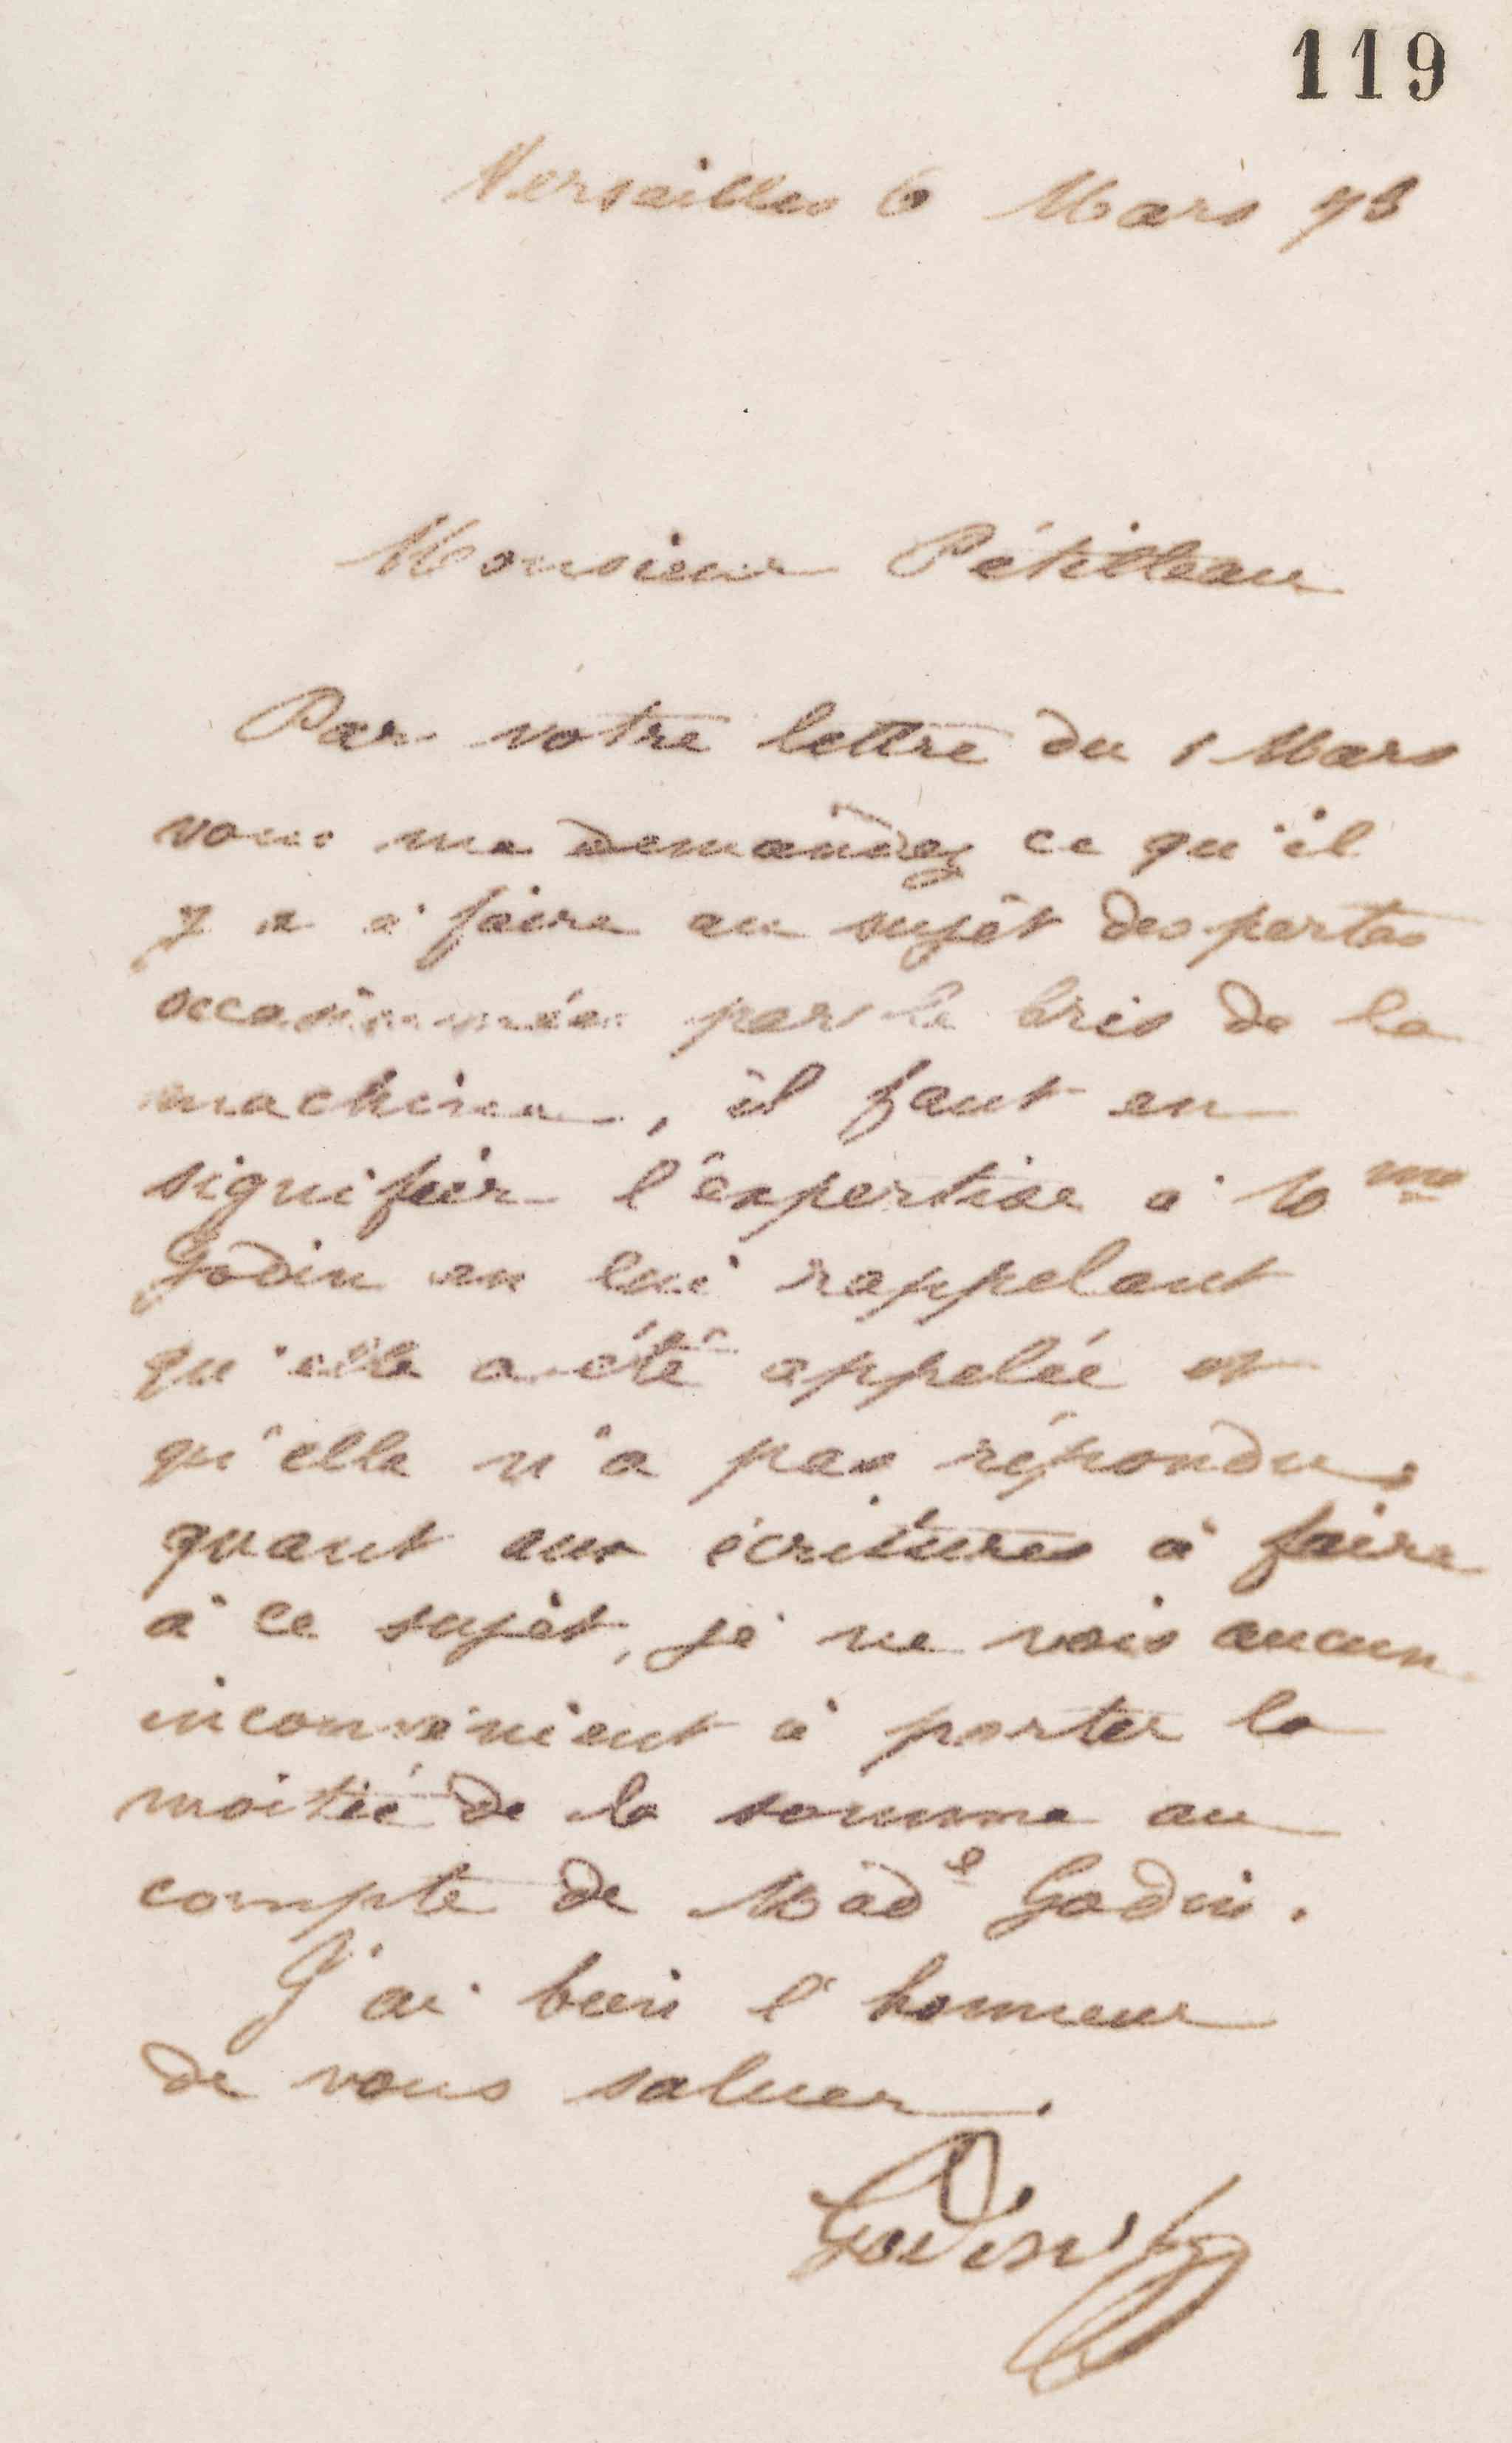 119
Versailles 6 Mars 73
Monsieur Pétilleau
Par votre lettre du 1 Mars
vous me demandez ce qu'il
y a à faire au sujet des pertes
occasionnées par le bris de la
machine, il faut en
signifier l'expertise à Mme
Godin en lui rappelant
qu'elle a été appelée et
qu'elle n'a pas répondu,
quant aux écritures à faire
à ce sujet, je ne vois aucun
inconvénient à porter la
moitié de la somme au
compte de Made Godin.
J'ai bien l'honneur
de vous saluer.
Godin